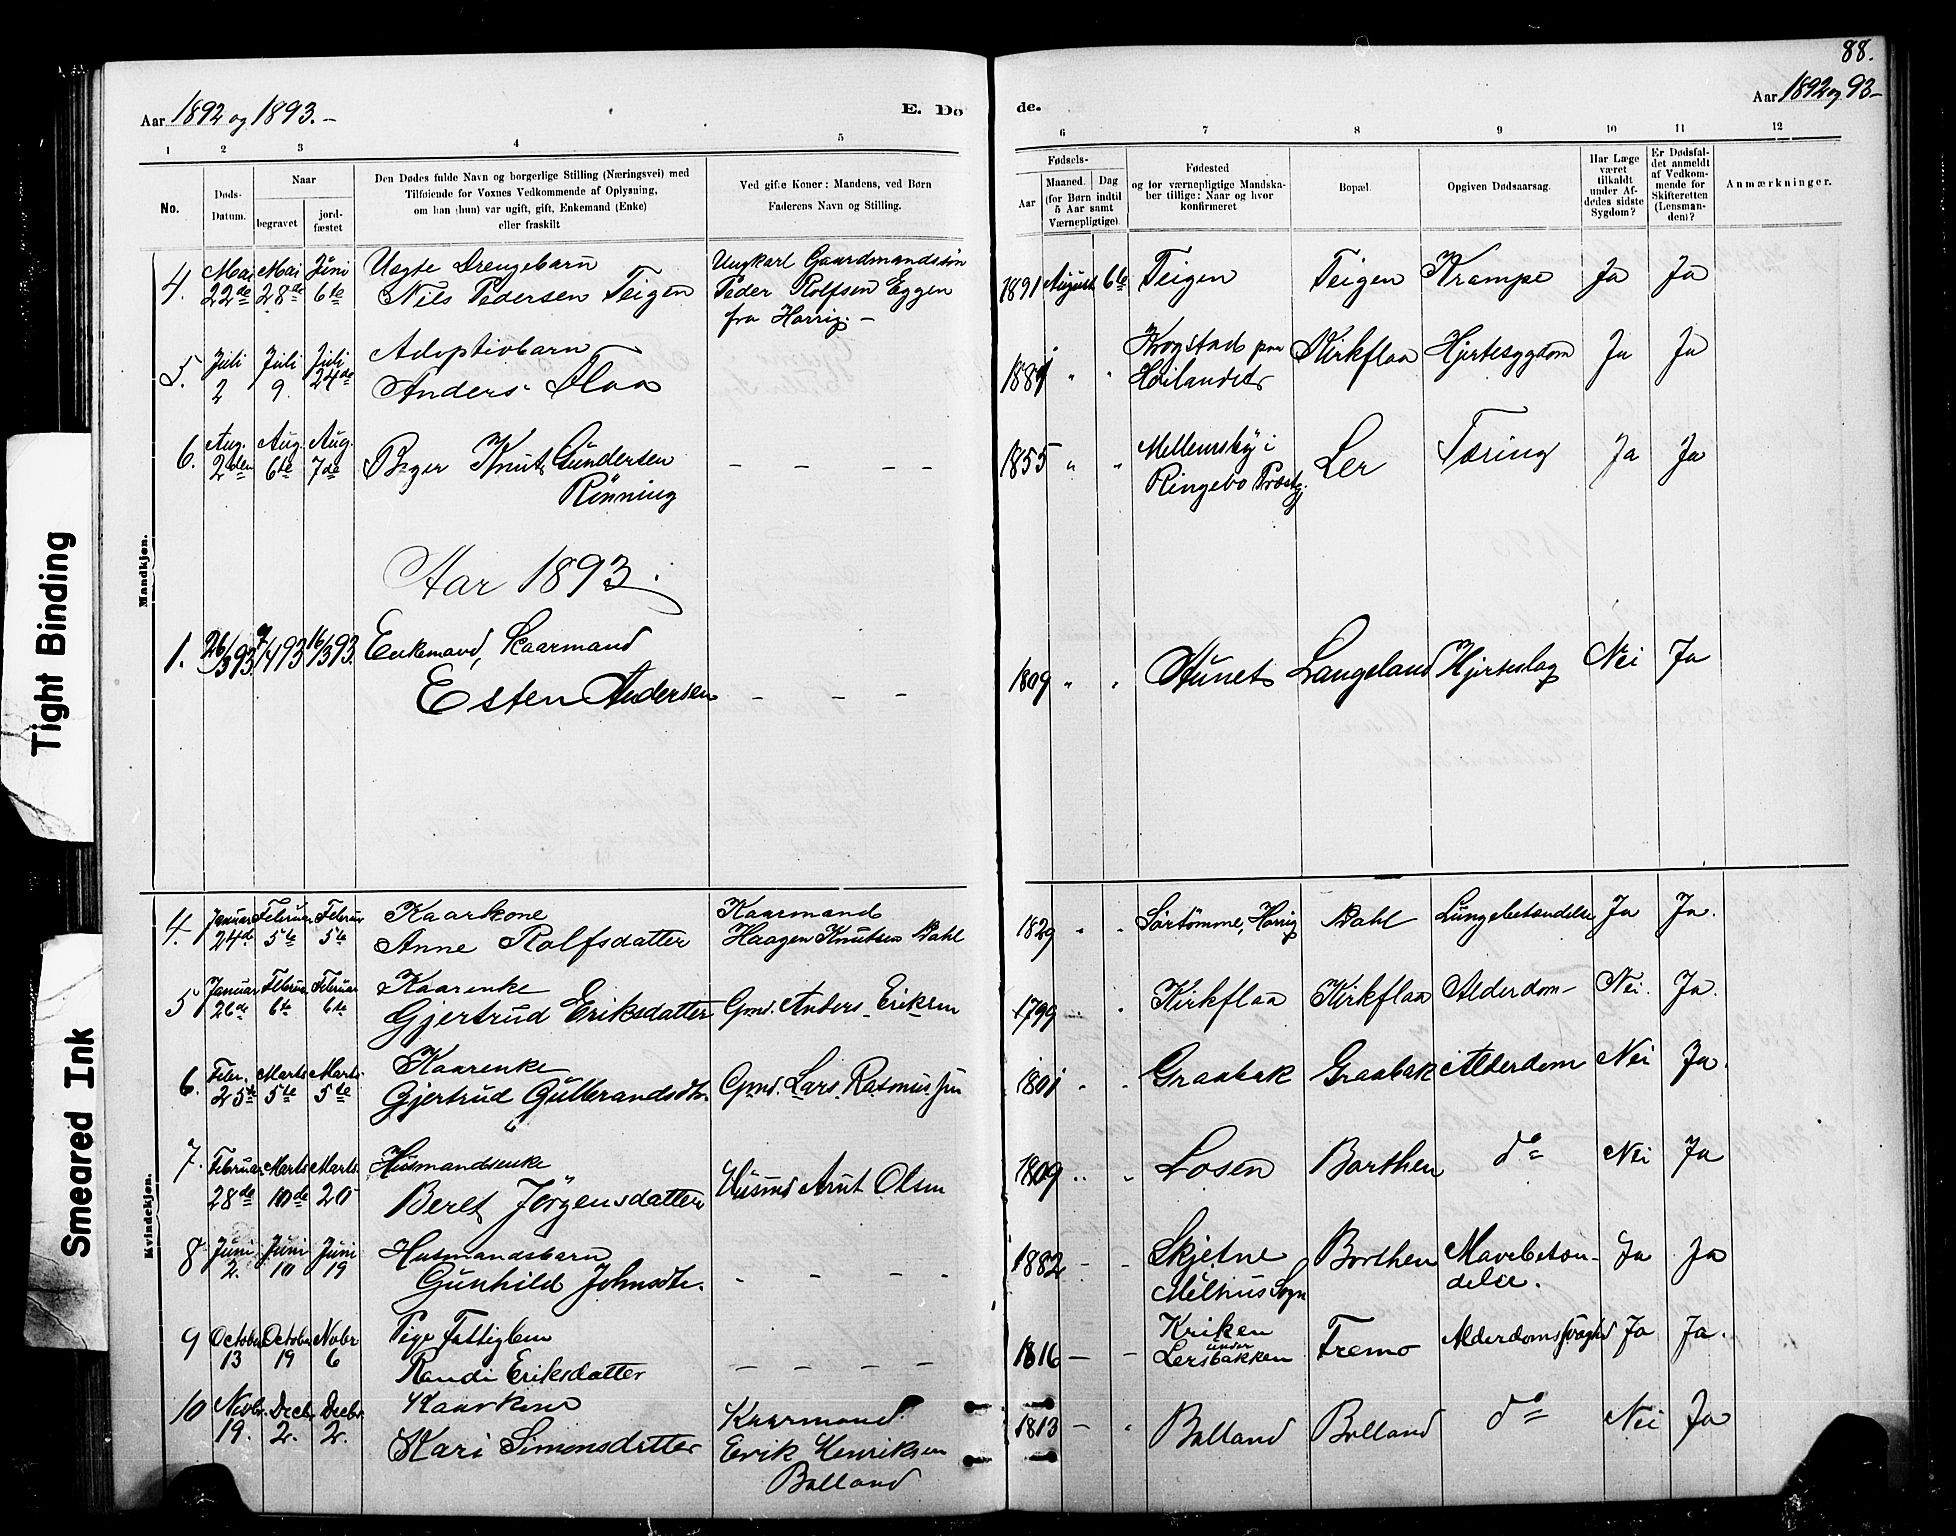 88.
Aar 1892 og 1893.-
E. Do
de.
Aar 1892 og 93-
1 2 3 4 5 6 7 8 9 10 11 12
No.
Døds-
Datum.
Naar
begravet
jord-
fæstet
Den Dødes fulde Navn og borgerlige Stilling (Næringsvei) med
Tilføiende for Voxnes Vedkommende af Oplysning,
om han (hun) var ugift, gift, Enkemand (Enke)
eller fraskilt
Ved gifte Koner: Mandens, ved Børn
Faderens Navn og Stilling.
Fødsels-
Aar
Maaned. Dag
(for Børn indtil
5 Aar samt
Værnepligtige)
Fødested
og for værnepligtige Mandska-
ber tillige: Naar og hvor
konfirmeret
Bopæl.
Opgiven Dødsaarsag.
Har Læge
været
tilkaldt
under Af-
dødes sidste
Sygdom?
Er Dødsfal-
det anmeldt
af Vedkom-
mende for
Skifteretten
(Lensman-
den)?
Anmærkninger.
Mandkjøn.
4. Mai 22de Mai 28de Juni 6te Uægte Drengebarn Ungkarl Gaardmandssøn
Nils Pedersen Teigen Peder Rolfsen Eggen
fra Horrig. -
1891 August 6te Teigen Teigen Krampe Ja Ja
5. Juli 2 Juli 9. Juli 24de Adoptivbarn
Anders Flaa
1881 " " Krogstad paa Kirkflaa Hjertesygdom Ja Ja
Høilandet
6. Aug. 2den Aug. 6te Aug. 7de Knut Gundersen
Rønning
- - - -
1855 " " Mellemsby i Ler Tæring Ja Ja
Ringebo Præstg.
Aar 1893.
1. 26/3 93. 9/4 93 16/3 93. Enkemand, Kaarmand
Esten Andersen - - -
1809 " " Hunet Langeland Hjerteslag Nei Ja
Kvindekjøn.
4. Januar 24de Februar 5te Februar 5te Kaarkone Kaarmand
Anne Rolfsdatter Haagen Knutsen Dahl
1829 " " Sørtømme, Horrig Dahl Lungebetændelse Ja Ja.
5 Januar 26de Februar 6te Februar 6te Kaarenke
Gjertrud Eriksdatter Gmd. Anders Eriksen
1799 " " Kirkflaa Kirkflaa Alderdom- Nei. Ja.
6. Febr. 25de Marts 5te Marts 5te Kaarenke
Gjertrud Gulbrandsdtr. Gmd. Lars Rasmussen
1801 " " Graabak Graabak Alderdom Nei Ja.
7. Februar 28de Marts 10de Marts 20 Husmandsenke
Beret Jørgensdatter Husmd Arnt Olsen
1809 " " Losen Borthen do Nei Ja
8. Juni 2. Juni 10 Juni 19 Husmandsbarn
Gunhild Johnsdtr. - - - -
1882 - - Skjetne Borthen Mavebetæn- Ja Ja
Melhus Sogn delse.
9 October 13 October 19 Novbr 6 Pige Fattiglem
Randi Eriksdatter - - - -
1816 - - Kriken
under
Lersbakken Fremo Alderdomssvaghd Ja Ja.
10 Novbr. 19. Decbr. 2. Decbr. 2. Kaarkone Kaarmand
Kari Simonsdatter Erik Henriksen
Bolland
1813 - " Bolland Bolland do Nei Ja
Tight Binding
Smeared Ink